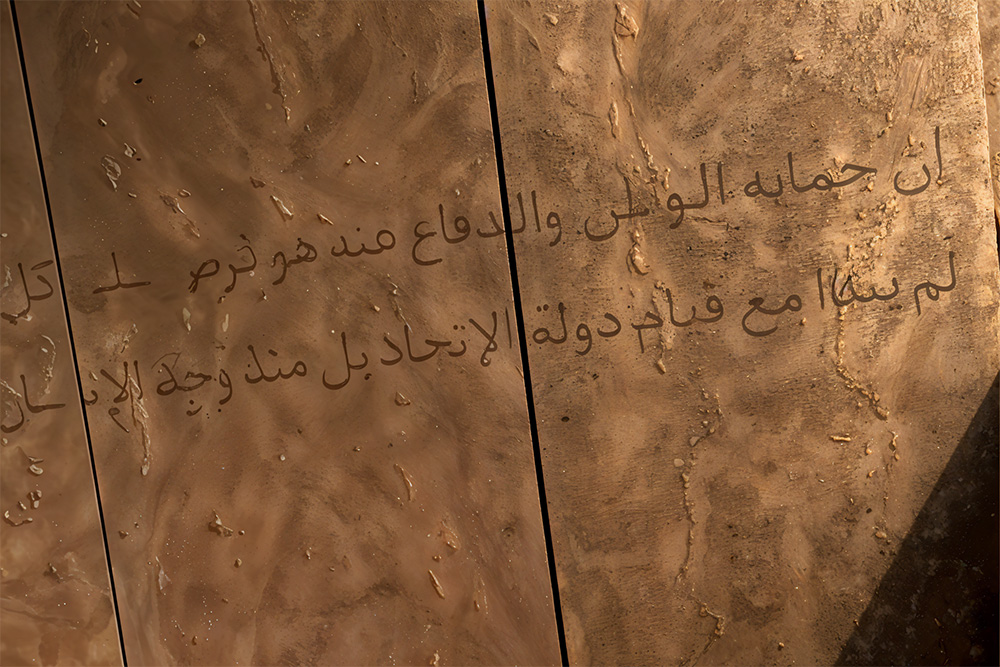 ان حمايه الوطن والدفاع منه هو فرض علـ كل
لم يبدا مع قيام دولة الإتحاد بل منذ وجة الإنسان